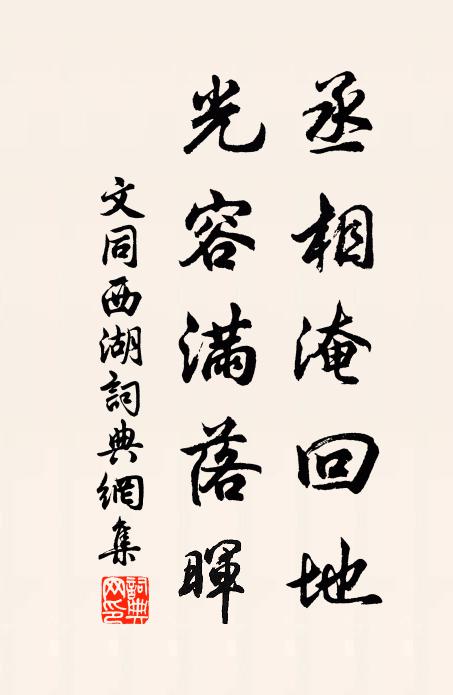 丞相淹回地
光容滿落暉
文同西湖詞典網集
詞典網印